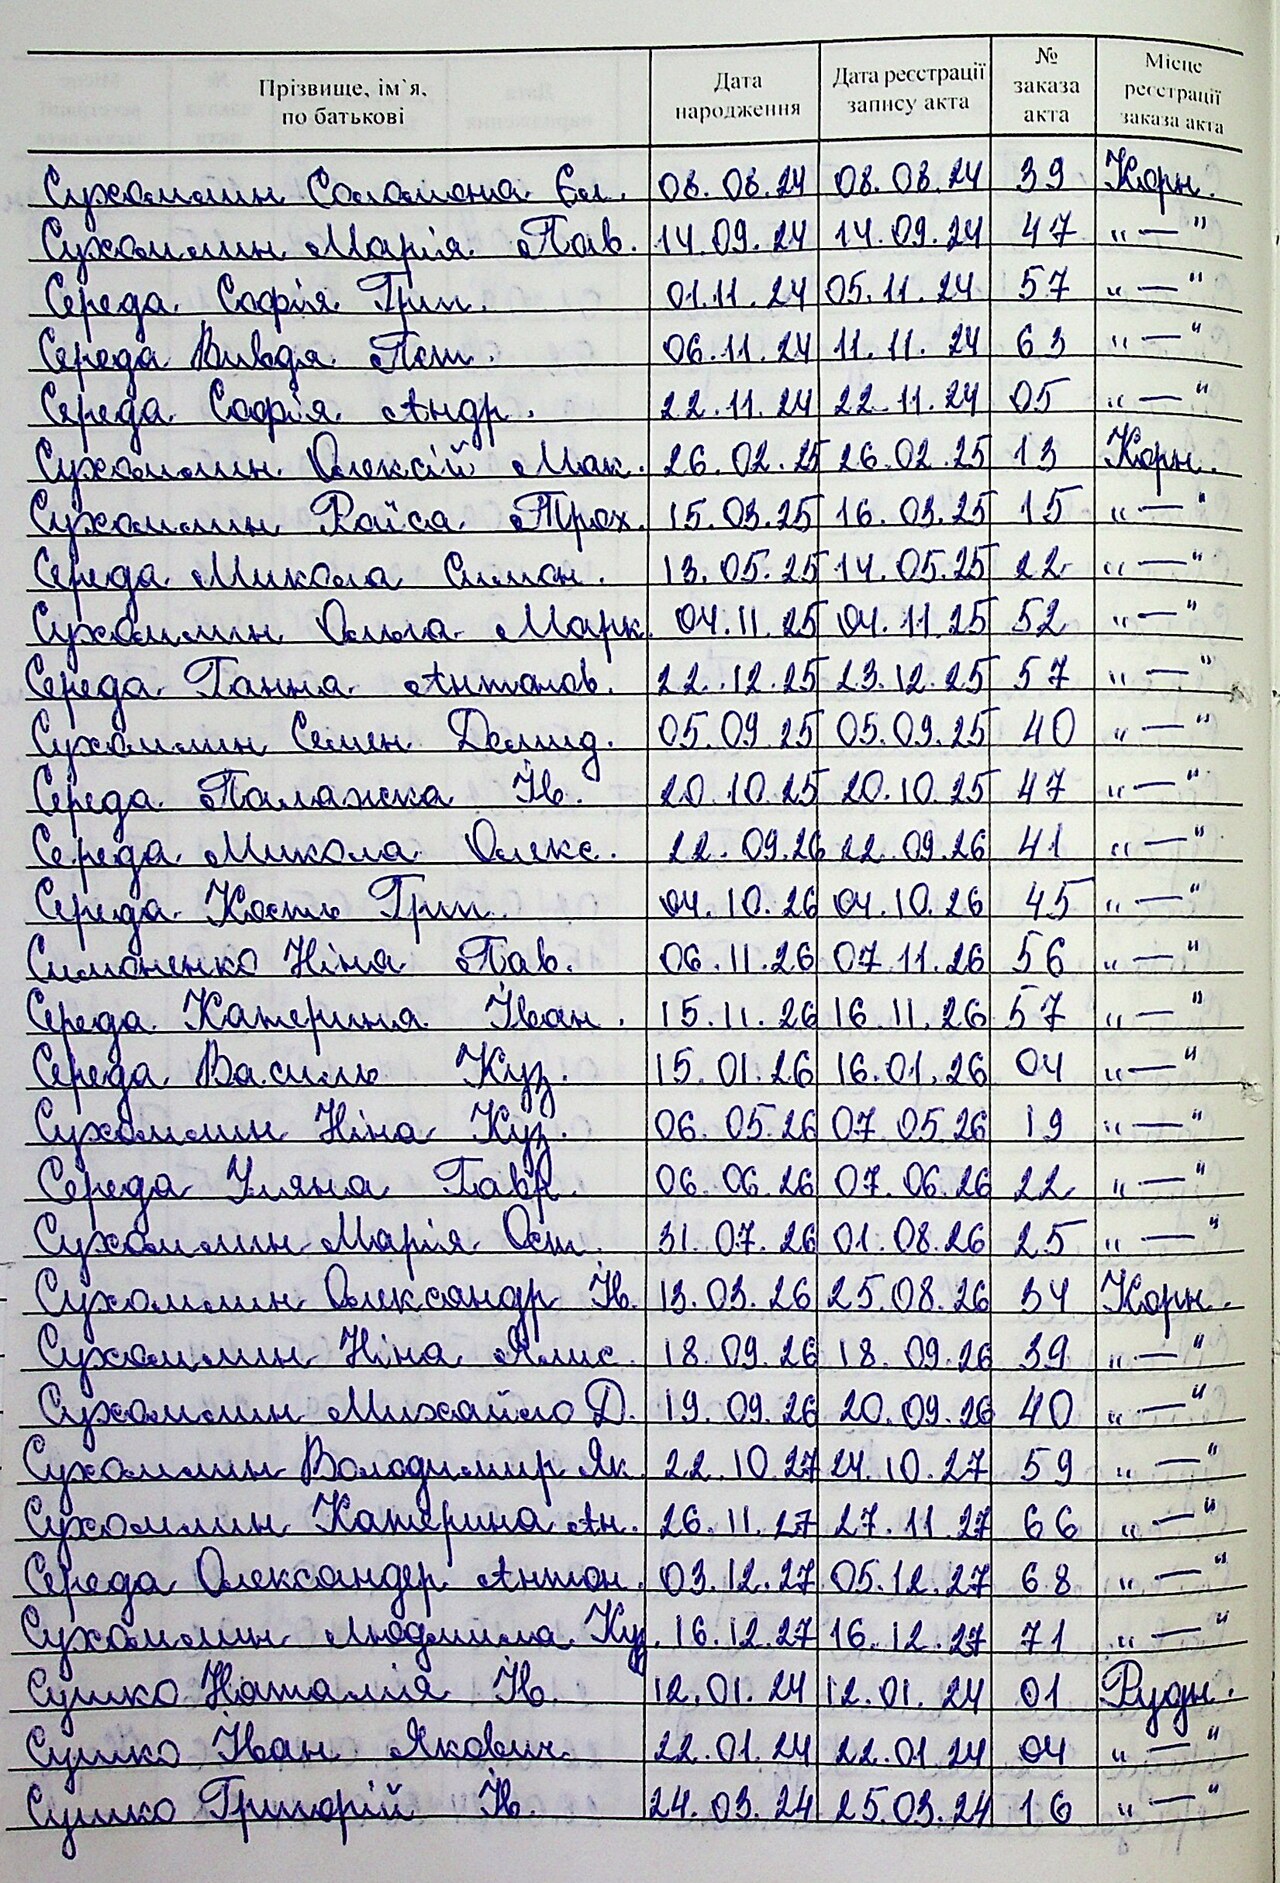 Прізвище, ім`я, по батькові | Дата народження | Дата реєстрації запису акта | № заказа акта | Місце реєстрації заказа акта
Сухомлин Соломона Єл. 08.08.24 08.08.24 39 Корн.
Сухомлин Марія Пав. 14.09.24 14.09.24 47 "—"
Середа Софія Грип. 01.11.24 05.11.24 57 "—"
Середа Вивдя Пет. 06.11.24 11.11.24 63 "—"
Середа Софія Андр. 22.11.24 22.11.24 05 "—"
Сухомлин Олексій Мак. 26.02.25 26.02.25 13 Корн.
Сухомлин Раїса Трох. 15.03.25 16.03.25 15 "—"
Середа Микола Симон. 13.05.25 14.05.25 22 "—"
Сухомлин Ольга Марк. 04.11.25 04.11.25 52 "—"
Середа Ганна Антонов. 22.12.25 23.12.25 57 "—"
Сухомлин Семен Демид. 05.09.25 05.09.25 40 "—"
Середа Палажка Ів. 20.10.25 20.10.25 47 "—"
Середа Микола Олекс. 22.09.26 22.09.26 41 "—"
Середа Кость Грип. 04.10.26 04.10.26 45 "—"
Симоненко Ніна Пав. 06.11.26 07.11.26 56 "—"
Середа Катерина Іван. 15.11.26 16.11.26 57 "—"
Середа Василь Куз. 15.01.26 16.01.26 04 "—"
Сухомлин Ніна Куз. 06.05.26 07.05.26 19 "—"
Середа Уляна Гавр. 06.06.26 07.06.26 22 "—"
Сухомлин Марія Ост. 31.07.26 01.08.26 25 "—"
Сухомлин Олександр Ів. 13.03.26 25.08.26 34 Корн.
Сухомлин Ніна Ялис. 18.09.26 18.09.26 39 "—"
Сухомлин Михайло Д. 19.09.26 20.09.26 40 "—"
Сухомлин Володимир Як. 22.10.27 24.10.27 59 "—"
Сухомлин Катерина Ан. 26.11.27 27.11.27 66 "—"
Середа Олександер Антон. 03.12.27 05.12.27 68 "—"
Сухомлин Людмила Куз. 16.12.27 16.12.27 71 "—"
Сушко Наталія Ів. 12.01.24 12.01.24 01 Рудн.
Сушко Іван Якович. 22.01.24 22.01.24 04 "—"
Сушко Григорій Ів. 24.03.24 25.03.24 16 "—"